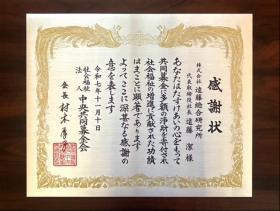 感謝状
株式会社 遠藤総合研究所
代表取締役社長 遠藤 潔 様
あなたはたすけあいの心をもって
共同募金に多額の浄財を寄付され
社会福祉の増進に貢献された功績
はまことに顕著であります
よってここに深甚なる感謝の
意を表します
令和七年十一月十日
社会福祉法人 中央共同募金会
会長 村木厚子